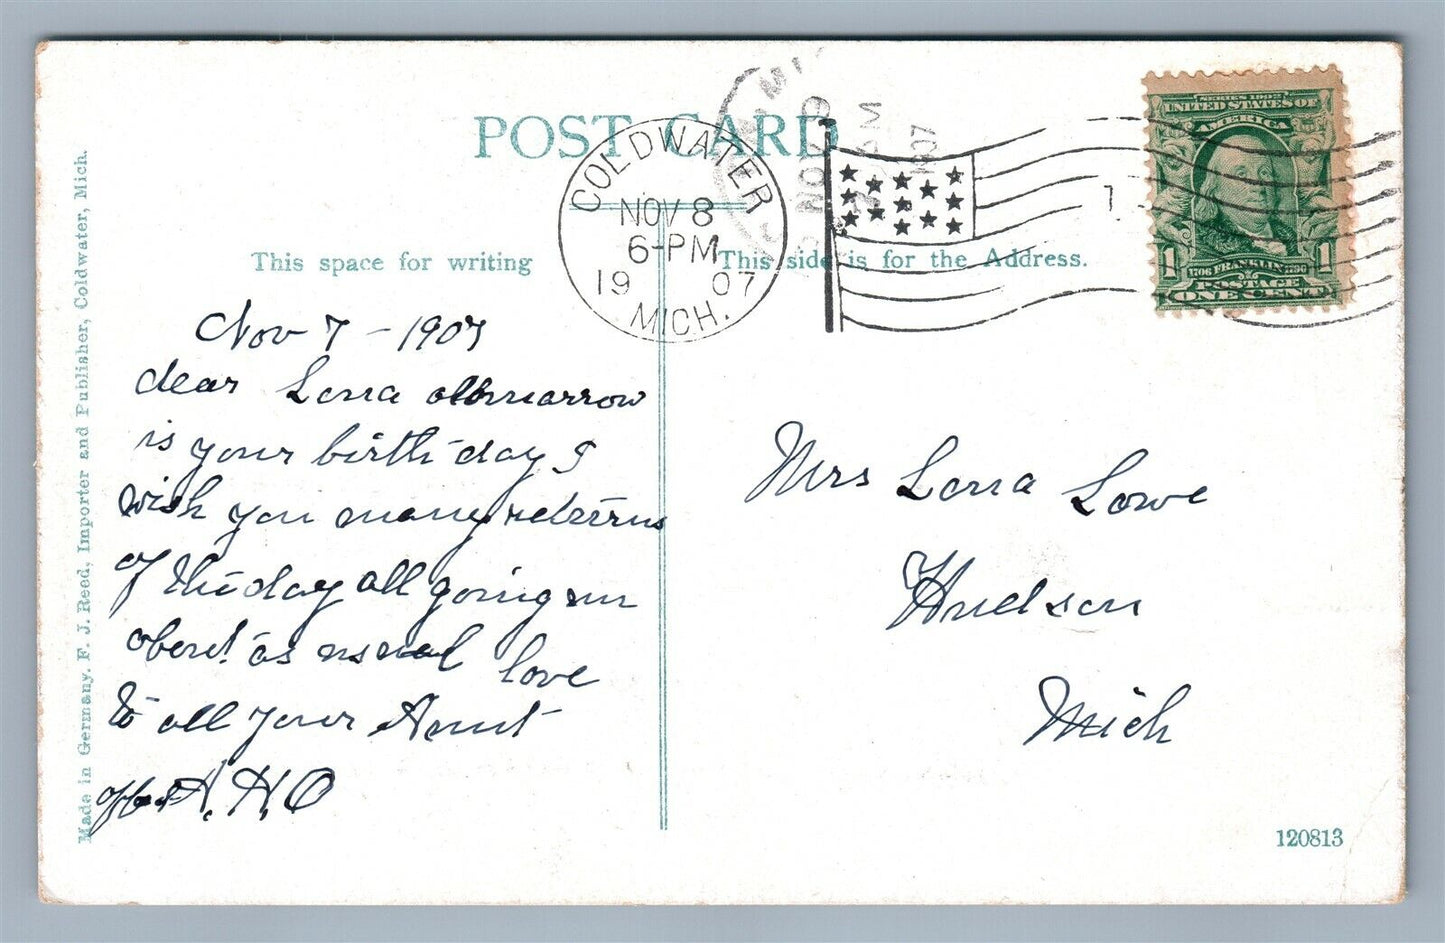 POST CARD
This space for writing
This side is for the Address.
COLDWATER
NOV 8
6-PM
1907
MICH.
NOV 9
AM
1907
1
SERIES 1902
UNITED STATES OF
AMERICA
1 1706 FRANKLIN 1790 1
POSTAGE
ONE CENT
Nov 7 - 1907
dear Lorra
is your birth day I
wish you many returns
of the day all going on
as usual love
to all your Aunt
A. H. O
Mrs Lorra Lowe
Hudson
Mich
Made in Germany. F. J. Reed, Importer and Publisher, Coldwater, Mich.
120813